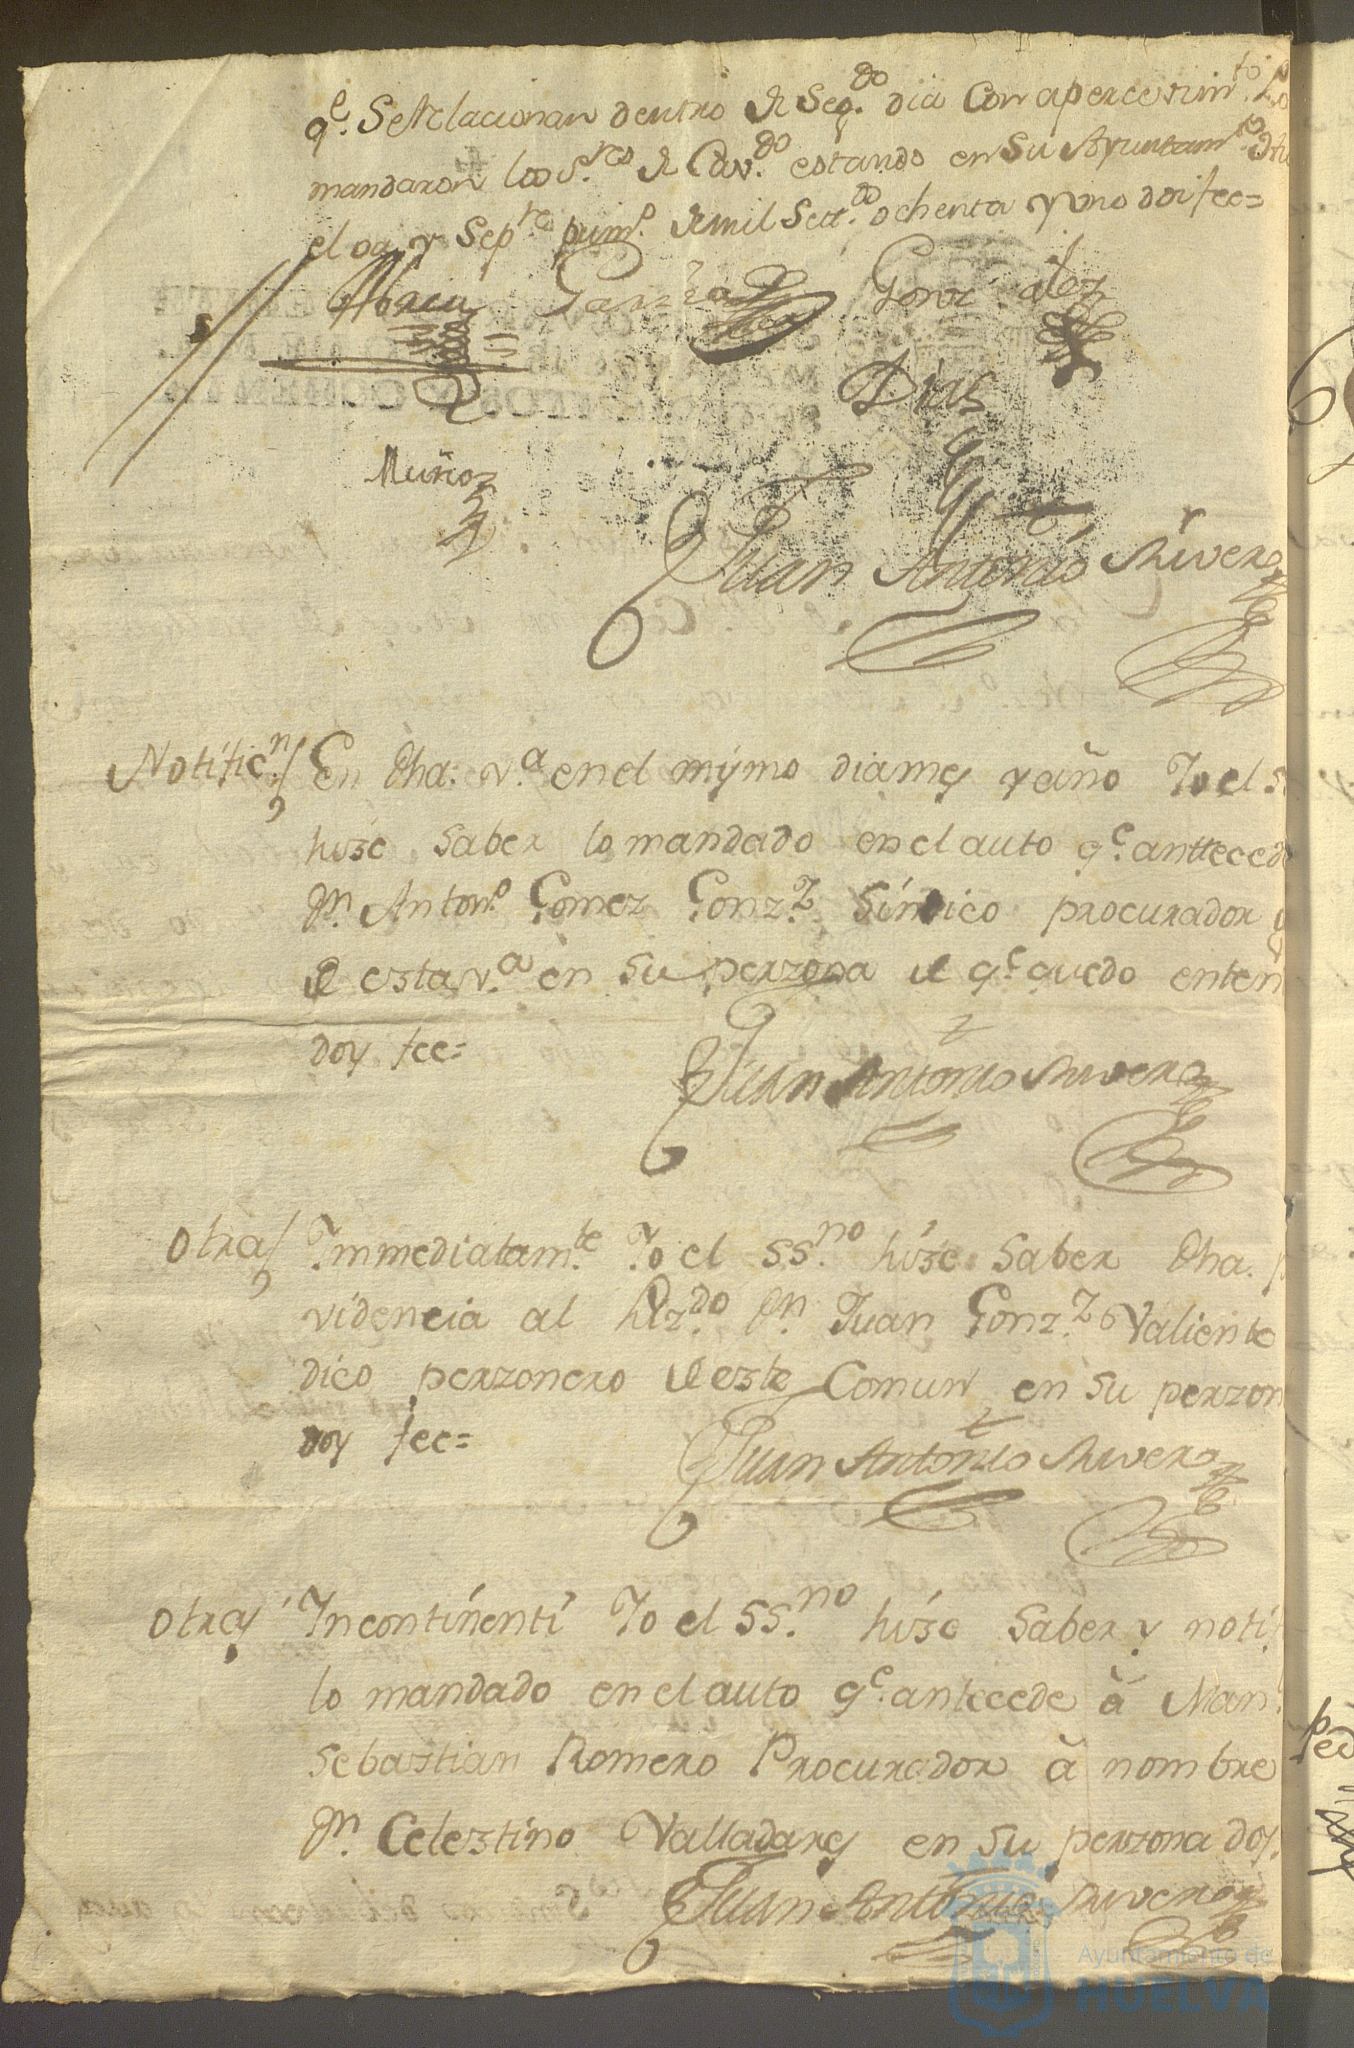 q.e Se Relacionan dentro de Seg.do dia Con apercevim.to Lo
mandaron los S.res de Cav.do estando en Su Ayuntam.to
el oy Sep.re prim.o de mil Sett.os ochenta y uno doi fee=
Abreu Garzia Gonzalez
Dias
Muñoz
Juan Antonio Rivera
Notific.n En dha. v.a en el mysmo dia mes y año Yo el s
hize saber lo mandado en el auto q.e anttecede
Dn. Anton.o Gomez Gonz.z Síndico procurador
de esta v.a en su perzona de q.e quedo enten
doy fee=
Juan Antonio Rivera
Otra Immediatam.te Yo el SS.no hize Saber dha. p
videncia al Lizdo. Dn. Juan Gonz.z Valiente
dico perzonero de este Comun en su perzon
doy fee=
Juan Antonio Rivera
Otra Incontinenti Yo el SS.no hize Saber y noti
lo mandado en el auto q.e antecede à Man.l
Sebastian Romero Procurador à nombre
Dn. Celeztino Valladares en su perzona doy
Juan Antonio Rivera
Ayuntamiento de
HUELVA